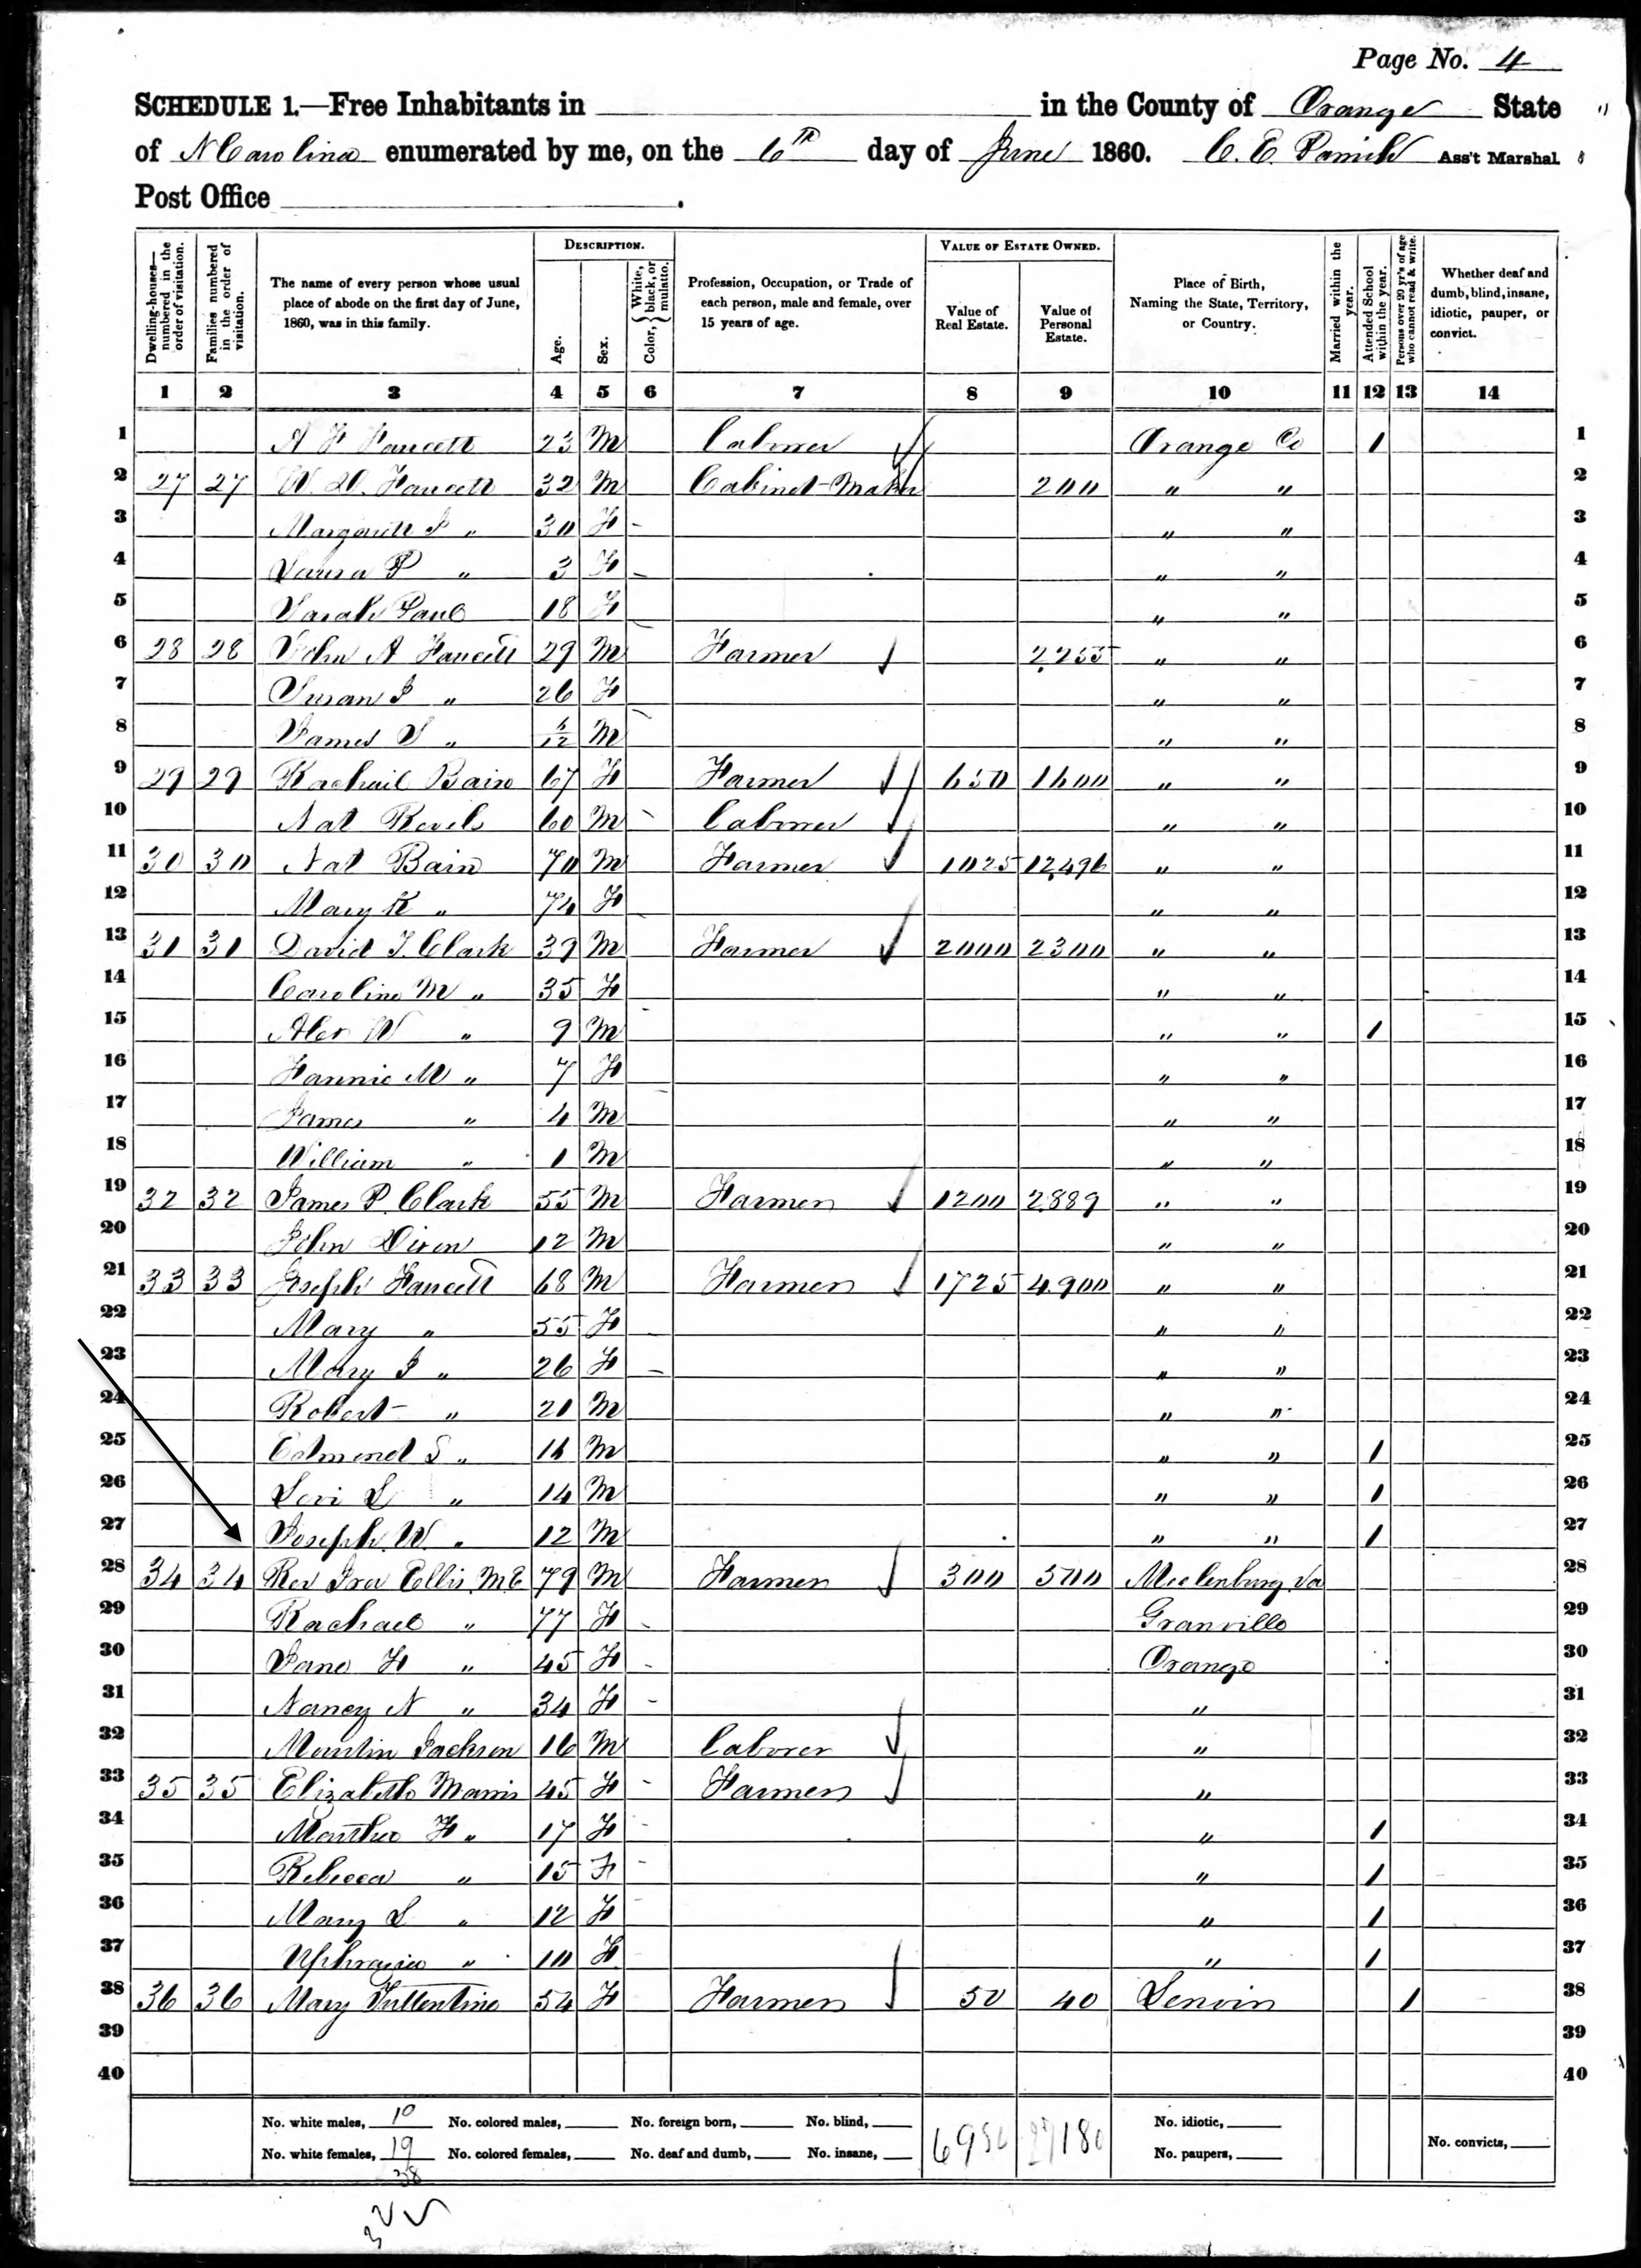 Page No. 4
SCHEDULE 1.—Free Inhabitants in in the County of Orange State
of N Carolina enumerated by me, on the 6th day of June 1860. Ass't Marshal
Post Office .
Dwelling-houses—numbered in the order of visitation.
Families numbered in the order of visitation.
The name of every person whose usual place of abode on the first day of June, 1860, was in this family.
DESCRIPTION.
Age.
Sex.
Color, { White, black, or mulatto.
Profession, Occupation, or Trade of each person, male and female, over 15 years of age.
VALUE OF ESTATE OWNED.
Value of Real Estate.
Value of Personal Estate.
Place of Birth, Naming the State, Territory, or Country.
Married within the year.
Attended School within the year.
Persons over 20 yr's of age who cannot read & write.
Whether deaf and dumb, blind, insane, idiotic, pauper, or convict.
1 2 3 4 5 6 7 8 9 10 11 12 13 14
1 A F Faucett 23 M Laborer Orange Co 1 1
2 27 27 W. D. Faucett 32 M Cabinet-Maker 200 " " 2
3 Margarett J " 30 F " " 3
4 Laura P " 3 F " " 4
5 Sarah Paul 18 F " " 5
6 28 28 John A Faucett 29 M Farmer 2255 " " 6
7 Susan J " 26 F " " 7
8 James S " M " " 8
9 29 29 Rachail Bain 67 F Farmer 650 1600 " " 9
10 Nat Revels 60 M Laborer " " 10
11 30 30 Nat Bain 70 M Farmer 1025 12,496 " " 11
12 Mary K " 74 F " " 12
13 31 31 David T. Clark 39 M Farmer 2000 2300 " " 13
14 Caroline M " 35 F " " 14
15 Alex W " 9 M " " 1 15
16 Fannie M " 7 F " " 16
17 James " 4 M " " 17
18 William " 1 M " " 18
19 32 32 James P. Clark 55 M Farmer 1200 2889 " " 19
20 John Dixon 12 M " " 20
21 33 33 Joseph Faucett 68 M Farmer 1725 4900 " " 21
22 Mary " 55 F " " 22
23 Mary J " 26 F " " 23
24 Robert " 20 M " " 24
25 Edmond S " 16 M " " 1 25
26 Levi L " 14 M " " 1 26
27 Joseph W. " 12 M " " 1 27
28 34 34 Rev Ira Ellis M.E 79 M Farmer 300 500 Meclenburg Va 28
29 Rachael " 77 F Granville 29
30 Jane F " 45 F Orange 30
31 Nancy N " 34 F " 31
32 Jackson 16 M Laborer " 32
33 35 35 Elizabeth 45 F Farmer " 33
34 Martha F " 17 F " 1 34
35 Rebecca " 15 F " 1 35
36 Mary L " 12 F " 1 36
37 " 10 F " 1 37
38 36 36 Mary 54 F Farmer 50 40 Lenoir 1 38
39 39
40 40
No. white males, No. colored males, No. foreign born, No. blind, No. idiotic,
No. white females, 19 No. colored females, No. deaf and dumb, No. insane, No. paupers, No. convicts,
38